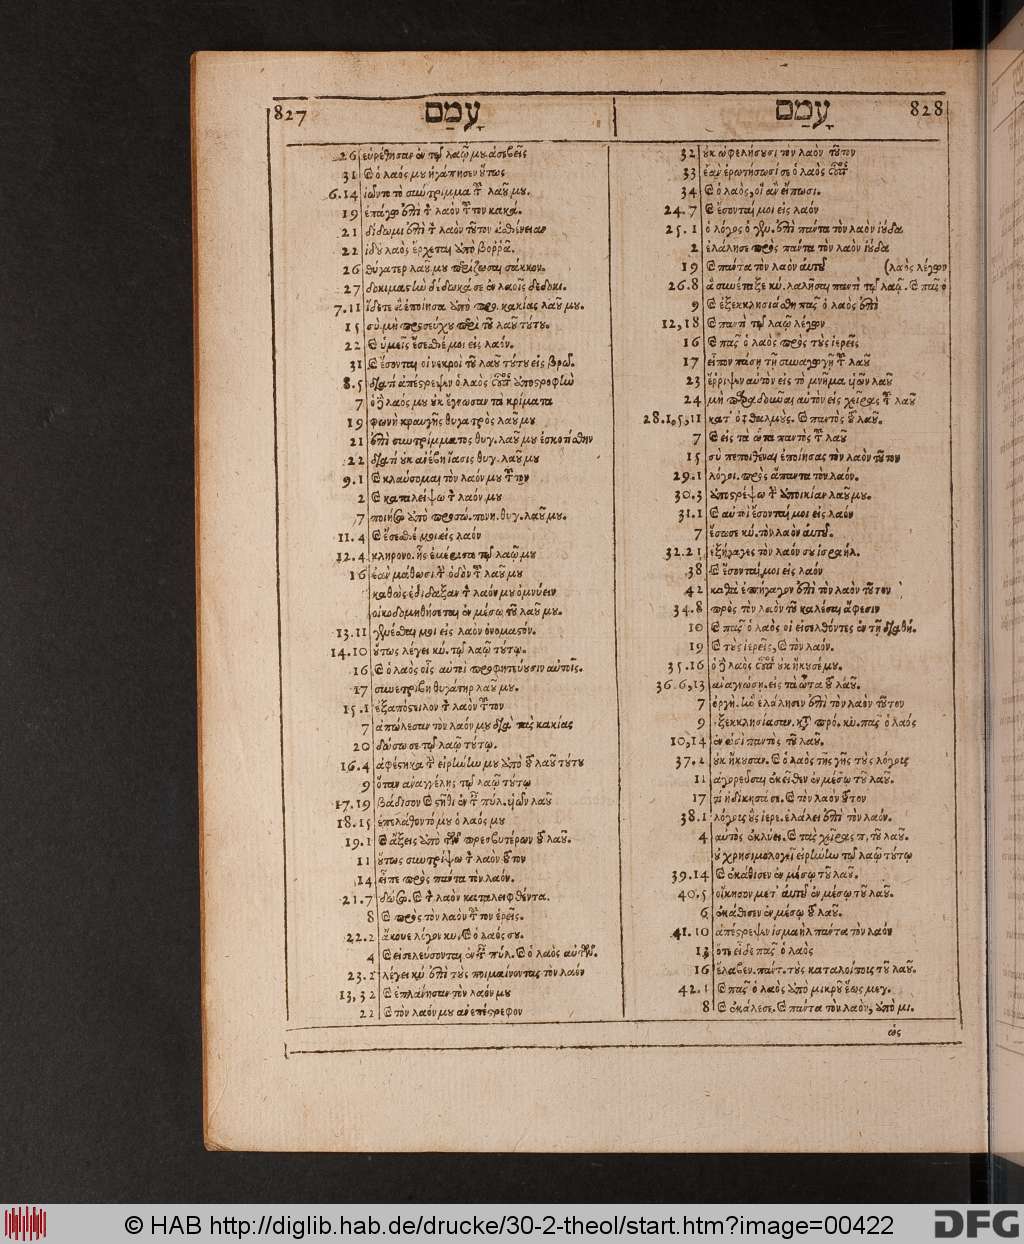 827 עָמַם עָמַם 828
26 εὑρέθησαν ἐν τῷ λαῷ μου ἀσεβεῖς
31 καὶ ὁ λαός μου ἠγάπησεν οὕτως
6.14 ἰῶντο τὸ σύντριμμα τοῦ λαοῦ μου.
19 ἐπάγω ἐπὶ τὸν λαὸν τοῦτον κακά.
21 δίδωμι ἐπὶ τὸν λαὸν τοῦτον ἀσθένειαν
22 ἰδοὺ λαὸς ἔρχεται ὑπὸ βορρᾶ.
26 θύγατερ λαοῦ μου περίζωσαι σάκκον.
27 δοκιμαστὴν δέδωκά σε ἐν λαοῖς δεδοκι.
7.11 ἴδετε ἃ ἐποίησα ὑπὸ προ. κακίας λαοῦ μου.
15 σὺ μὴ προσεύχου περὶ τοῦ λαοῦ τούτου.
22 καὶ ὑμεῖς ἔσεσθέ μοι εἰς λαόν.
31 καὶ ἔσονται οἱ νεκροὶ τοῦ λαοῦ τούτου εἰς βρῶ.
8.5 διατί ἀπέστρεψεν ὁ λαὸς οὗτος ἀποστροφὴν
7 ὁ δὲ λαός μου οὐκ ἔγνωσαν τὰ κρίματα
19 φωνὴ κραυγῆς θυγατρὸς λαοῦ μου
21 ἐπὶ συντρίμματος θυγ. λαοῦ μου ἐσκοτώθην
22 διατί οὐκ ἀνέβη ἴασις θυγ. λαοῦ μου
9.1 καὶ κλαύσομαι τὸν λαόν μου τοῦτον
2 καὶ καταλείψω τὸν λαόν μου
7 ποιήσω ὑπὸ προσώ. πονη. θυγ. λαοῦ μου.
11.4 καὶ ἔσεσθέ μοι εἰς λαόν
12.4 κληρονο. ἧς ἐμέρισα τῷ λαῷ μου
16 ἐὰν μάθωσι τὴν ὁδὸν τοῦ λαοῦ μου
καθὼς ἐδίδαξαν τὸν λαόν μου ὀμνύειν
οἰκοδομηθήσεται ἐν μέσῳ τοῦ λαοῦ μου.
13.11 γενέσθαι μοι εἰς λαὸν ὀνομαστόν.
14.10 οὕτως λέγει κύ. τῷ λαῷ τούτῳ.
16 καὶ ὁ λαὸς οἷς αὐτοὶ προφητεύουσιν αὐτοῖς.
17 συνετρίβη θυγάτηρ λαοῦ μου.
15.1 ἐξαπόστειλον τὸν λαὸν τοῦτον
7 ἀπώλεσαν τὸν λαόν μου διὰ τὰς κακίας
20 δώσω σε τῷ λαῷ τούτῳ.
16.4 ἀφέστηκα τὴν εἰρήνην μου ὑπὸ τοῦ λαοῦ τούτου
9 ὅταν ἀναγγείλῃς τῷ λαῷ τούτῳ
17.19 βάδισον καὶ στῆθι ἐν ταῖς πύλ. υἱῶν λαοῦ
18.15 ἐπελάθοντό μου ὁ λαός μου
19.1 καὶ ἄξεις ὑπὸ τῶν πρεσβυτέρων τοῦ λαοῦ.
11 οὕτως συντρίψω τὸν λαὸν τοῦτον
14 εἶπε πρὸς πάντα τὸν λαόν.
21.7 δώσω. καὶ τὸν λαὸν καταλειφθέντα.
8 καὶ πρὸς τὸν λαὸν τοῦτον ἐρεῖς.
22.2 ἄκουε λόγον κυ. καὶ ὁ λαός σου.
4 καὶ εἰσελεύσονται ἐν ταῖς πύλ. καὶ ὁ λαὸς αὐτῶν.
23.2 λέγει κύ ἐπὶ τοὺς ποιμαίνοντας τὸν λαόν
13,32 καὶ ἐπλάνησαν τὸν λαόν μου
22 καὶ τὸν λαόν μου ἀνεπέστρεφον
32 οὐκ ὠφελήσουσι τὸν λαὸν τοῦτον
33 ἐὰν ἐρωτήσωσί σε ὁ λαὸς οὗτος
34 καὶ ὁ λαός, οἳ ἂν εἴπωσι.
24.7 καὶ ἔσονταί μοι εἰς λαόν
25.1 ὁ λόγος ὁ γενό. ἐπὶ πάντα τὸν λαὸν ἰούδα
2 ἐλάλησε πρὸς πάντα τὸν λαὸν ἰούδα
19 καὶ πάντα τὸν λαὸν αὐτοῦ (λαὸς λέγων
26.8 ἃ συνέταξε κύ. λαλῆσαι παντὶ τῷ λαῷ. καὶ πᾶς ὁ
9 καὶ ἐξεκκλησιάσθη πᾶς ὁ λαὸς ἐπὶ
12,18 καὶ παντὶ τῷ λαῷ λέγων
16 καὶ πᾶς ὁ λαὸς πρὸς τοὺς ἱερεῖς
17 εἶπον πάσῃ τῇ συναγωγῇ τοῦ λαοῦ
23 ἔρριψεν αὐτὸν εἰς τὸ μνῆμα υἱῶν λαοῦ
24 μὴ παραδοῦναι αὐτὸν εἰς χεῖρας τοῦ λαοῦ
28.1,5,11 κατ᾽ ὀφθαλμούς. καὶ παντὸς τοῦ λαοῦ.
7 καὶ εἰς τὰ ὦτα παντὸς τοῦ λαοῦ
15 σὺ πεποιθέναι ἐποίησας τὸν λαὸν τοῦτον
29.1 λόγοι. πρὸς ἅπαντα τὸν λαόν.
30.3 ἀποστρέψω τὴν ἀποικίαν λαοῦ μου.
31.1 καὶ αὐτοὶ ἔσονταί μοι εἰς λαόν
7 ἔσωσε κύ. τὸν λαὸν αὐτοῦ.
32.21 ἐξήγαγες τὸν λαόν σου ἰσραήλ.
38 καὶ ἔσονταί μοι εἰς λαόν
42 καθὰ ἐπήγαγον ἐπὶ τὸν λαὸν τοῦτον
34.8 πρὸς τὸν λαὸν τοῦ καλέσαι ἄφεσιν
10 καὶ πᾶς ὁ λαὸς οἱ εἰσελθόντες ἐν τῇ διαθή.
19 καὶ τοὺς ἱερεῖς, καὶ τὸν λαόν.
35.16 ὁ δὲ λαὸς οὗτος οὐκ ἤκουσέ μου.
36.6,13 ἀναγνώσῃ. εἰς τὰ ὦτα τοῦ λαοῦ.
7 ὀργὴ. ἣν ἐλάλησεν ἐπὶ τὸν λαὸν τοῦτον
9 ἐξεκκλησίασαν. κατὰ πρό. κύ. πᾶς ὁ λαός
10,14 ἐν ὠσὶ παντὸς τοῦ λαοῦ.
37.2 οὐκ ἤκουσαν. καὶ ὁ λαὸς τῆς γῆς τοὺς λόγους
12 ἀγοράσαι ἐκεῖθεν ἐν μέσῳ τοῦ λαοῦ.
17 τί ἠδίκησά σε. καὶ τὸν λαὸν τοῦτον
38.1 λόγους οὓς ἱερε. ἐλάλει ἐπὶ τὸν λαόν.
4 αὐτὸς ἐκλύει. καὶ τὰς χεῖρας π. τοῦ λαοῦ.
οὐ χρησμολογεῖ εἰρήνην τῷ λαῷ τούτῳ
39.14 καὶ ἐκάθισεν ἐν μέσῳ τοῦ λαοῦ.
40.5 οἴκησον μετ᾽ αὐτοῦ ἐν μέσῳ τοῦ λαοῦ.
6 ἐκάθισεν ἐν μέσῳ τοῦ λαοῦ.
41.10 ἀπέστρεψεν ἰσμαὴλ πάντα τὸν λαόν
13 ὅτε εἶδε πᾶς ὁ λαὸς
16 ἔλαβεν. πάντ. τοὺς καταλοίπους τοῦ λαοῦ.
42.1 καὶ πᾶς ὁ λαὸς ἀπὸ μικροῦ ἕως μεγ.
8 καὶ ἐκάλεσε. καὶ πάντα τὸν λαόν, ἀπὸ μι.
ὡς
© HAB http://diglib.hab.de/drucke/30-2-theol/start.htm?image=00422
DFG